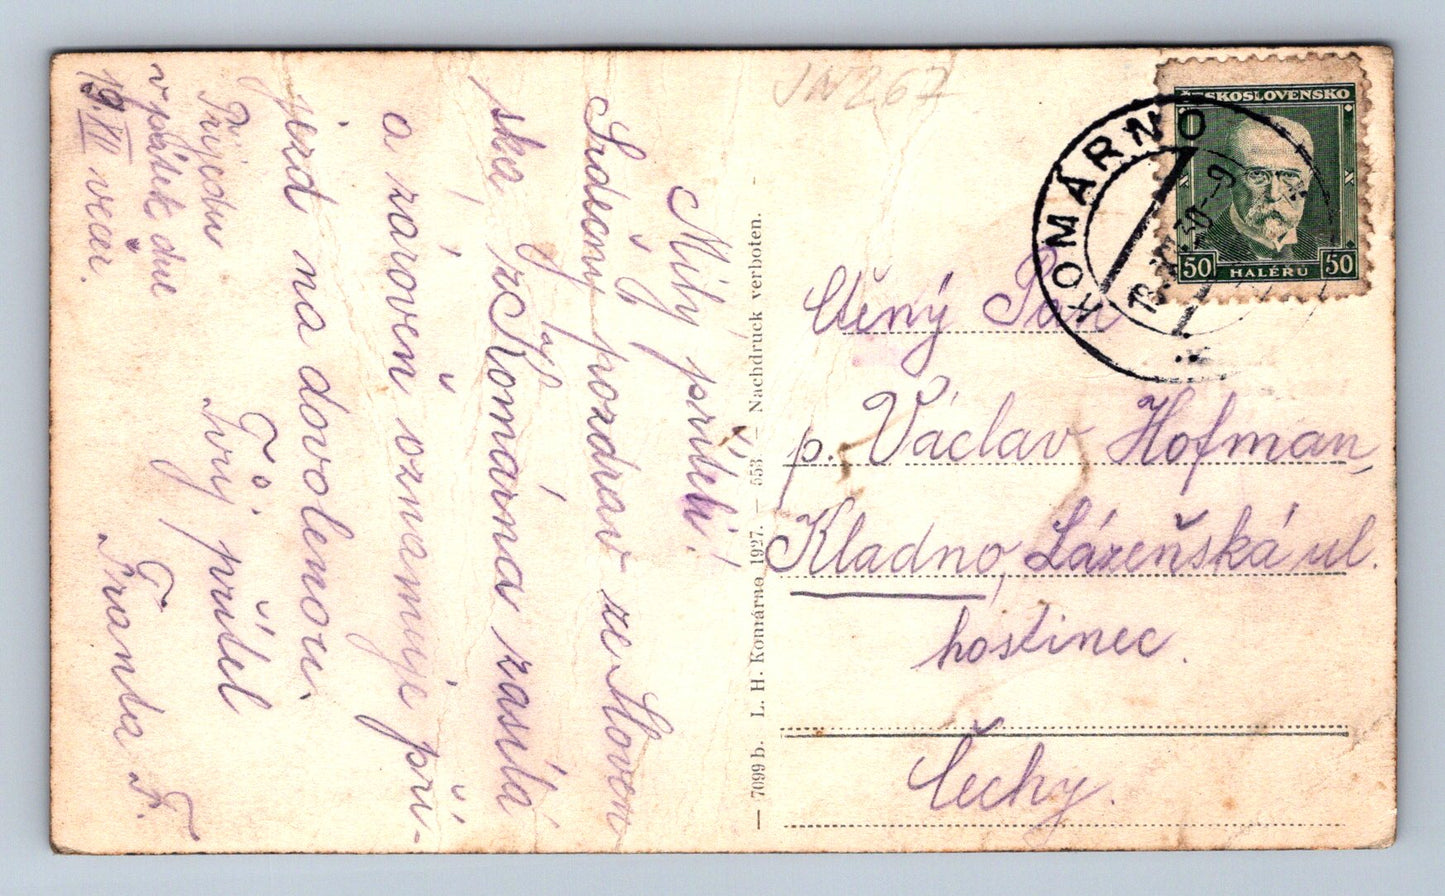 Milý příteli!
Srdečný pozdrav ze Sloven
ska, z Komárna zasílá
a zároveň oznamuje při-
jezd na dovolenou.
Tvůj přítel
Franta F.
Přijedu
v pátek dne
19 XII večer.
— 7099 b. L. H. Komárno, 1927. — 553. — Nachdruck verboten. -
JN267
ČESKOSLOVENSKO
50 HALÉŘŮ 50
KOMÁRNO
Ctěný Pán
p. Václav Hofman,
Kladno, Lázeňská ul.
hostinec.
Čechy.